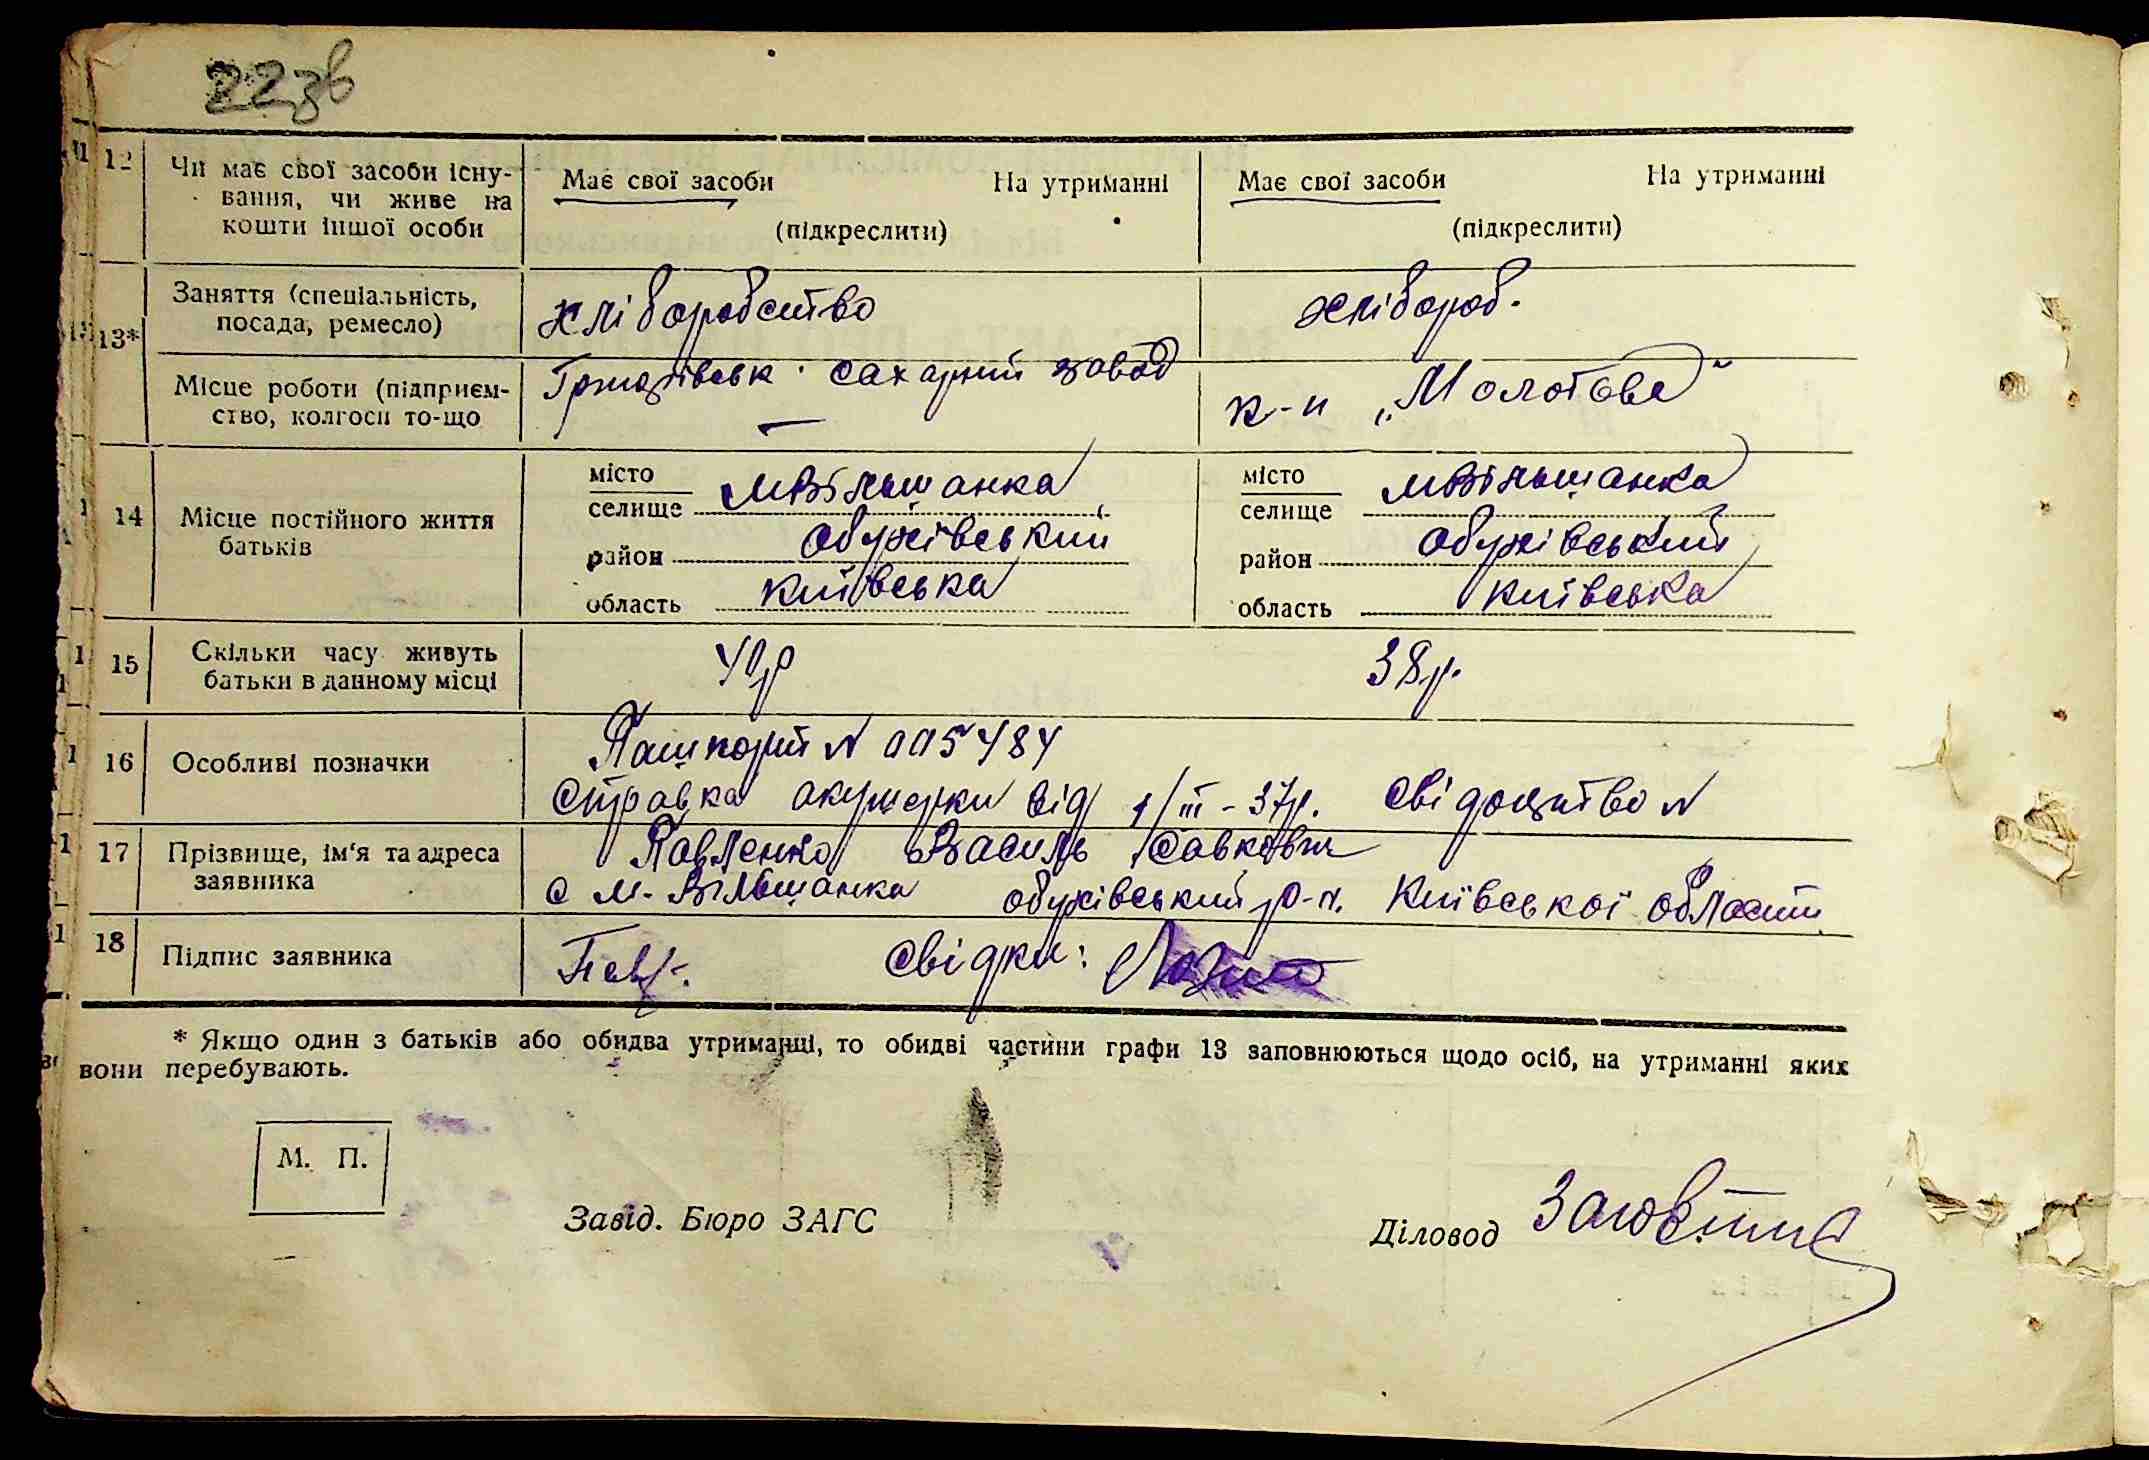 223в
12 Чи має свої засоби існу-
вання, чи живе на
кошти іншої особи
Має свої засоби На утриманні
(підкреслити)
Має свої засоби На утриманні
(підкреслити)
13* Заняття (спеціальність,
посада, ремесло)
хліборобство
хлібороб.
Місце роботи (підприєм-
ство, колгосп то-що
сахарний завод
к-п „Молотова"
14 Місце постійного життя
батьків
місто
селище МВільшанка
район Обухівський
область Київська
місто
селище МВільшанка
район Обухівський
область Київська
15 Скільки часу живуть
батьки в данному місці
40р
38р.
16 Особливі позначки
Пашпорт N 005484
Справка акушерки від 1/III-37р. Свідоцтво N
17 Прізвище, ім'я та адреса
заявника
Павленко Василь Савкович
с М-Вільшанка обухівський р-н. Київської області
18 Підпис заявника
Свідки:
* Якщо один з батьків або обидва утриманці, то обидві частини графи 13 заповнюються щодо осіб, на утриманні яких
вони перебувають.
М. П.
Завід. Бюро ЗАГС
Діловод